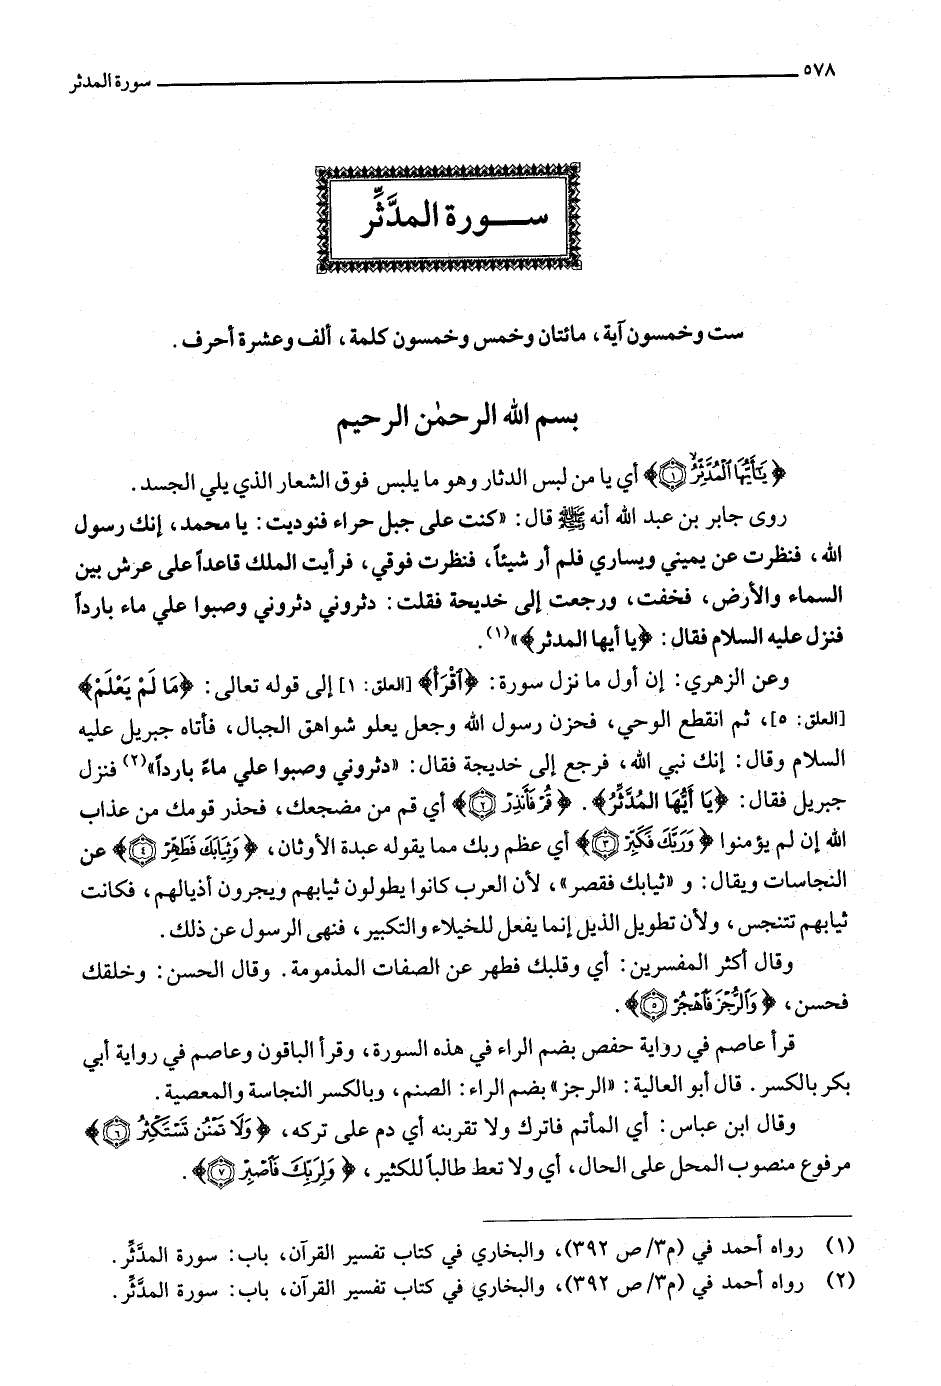 ٥٧٨ سورة المدثر
ســورة المدَّثِّر
ست وخمسون آية، مائتان وخمس وخمسون كلمة، ألف وعشرة أحرف.
بسم الله الرحمٰن الرحيم
﴿يَٰٓأَيُّهَا ٱلْمُدَّثِّرُ ۝١﴾ أي يا من لبس الدثار وهو ما يلبس فوق الشعار الذي يلي الجسد.
روى جابر بن عبد الله أنه ﷺ قال: «كنت على جبل حراء فنوديت: يا محمد، إنك رسول
الله، فنظرت عن يميني ويساري فلم أر شيئاً، فنظرت فوقي، فرأيت الملك قاعداً على عرش بين
السماء والأرض، فخفت، ورجعت إلى خديحة فقلت: دثروني دثروني وصبوا علي ماء بارداً
فنزل عليه السلام فقال: ﴿يا أيها المدثر﴾»(١).
وعن الزهري: إن أول ما نزل سورة: ﴿ٱقْرَأْ﴾ [العلق: ١] إلى قوله تعالى: ﴿مَا لَمْ يَعْلَمْ﴾
[العلق: ٥]، ثم انقطع الوحي، فحزن رسول الله وجعل يعلو شواهق الجبال، فأتاه جبريل عليه
السلام وقال: إنك نبي الله، فرجع إلى خديجة فقال: «دثروني وصبوا علي ماءً بارداً»(٢) فنزل
جبريل فقال: ﴿يَا أَيُّهَا المُدَّثِّرُ﴾. ﴿قُمْ فَأَنذِرْ ۝٢﴾ أي قم من مضجعك، فحذر قومك من عذاب
الله إن لم يؤمنوا ﴿وَرَبَّكَ فَكَبِّرْ ۝٣﴾ أي عظم ربك مما يقوله عبدة الأوثان، ﴿وَثِيَابَكَ فَطَهِّرْ ۝٤﴾ عن
النجاسات ويقال: و «ثيابك فقصر»، لأن العرب كانوا يطولون ثيابهم ويجرون أذيالهم، فكانت
ثيابهم تتنجس، ولأن تطويل الذيل إنما يفعل للخيلاء والتكبير، فنهى الرسول عن ذلك.
وقال أكثر المفسرين: أي وقلبك فطهر عن الصفات المذمومة. وقال الحسن: وخلقك
فحسن، ﴿وَٱلرُّجْزَ فَٱهْجُرْ ۝٥﴾.
قرأ عاصم في رواية حفص بضم الراء في هذه السورة، وقرأ الباقون وعاصم في رواية أبي
بكر بالكسر. قال أبو العالية: «الرجز» بضم الراء: الصنم، وبالكسر النجاسة والمعصية.
وقال ابن عباس: أي المأثم فاترك ولا تقربنه أي دم على تركه، ﴿وَلَا تَمْنُن تَسْتَكْثِرُ ۝٦﴾
مرفوع منصوب المحل على الحال، أي ولا تعط طالباً للكثير، ﴿وَلِرَبِّكَ فَٱصْبِرْ ۝٧﴾.
(١) رواه أحمد في (م٣/ ص ٣٩٢)، والبخاري في كتاب تفسير القرآن، باب: سورة المدَّثِّر.
(٢) رواه أحمد في (م٣/ ص ٣٩٢)، والبخاري في كتاب تفسير القرآن، باب: سورة المدَّثِّر.